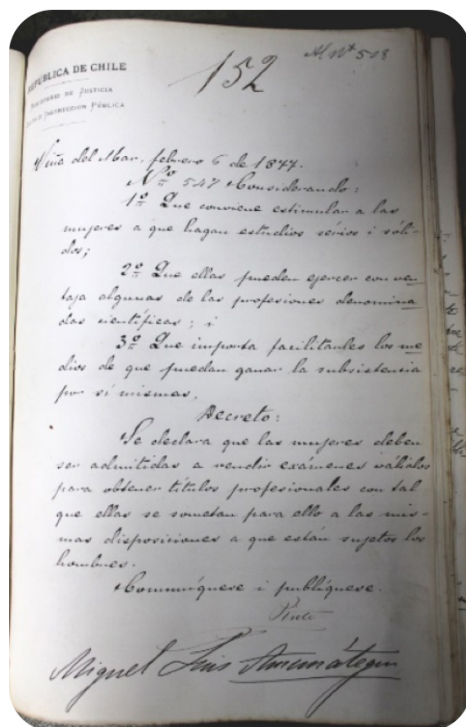 152
Al Nº 508
REPÚBLICA DE CHILE
MINISTERIO DE JUSTICIA
INSTRUCCION PÚBLICA
Viña del Mar, febrero 6 de 1877.
Nº 547 Considerando:
1º Que conviene estimular a las
mujeres a que hagan estudios serios i sóli-
dos;
2º Que ellas pueden ejercer con ven-
taja algunas de las profesiones denomina-
das científicas; i
3º Que importa facilitarles los me-
dios de que puedan ganar la subsistencia
por sí mismas,
Decreto:
Se declara que las mujeres deben
ser admitidas a rendir exámenes válidos
para obtener títulos profesionales con tal
que ellas se sometan para ello a las mis-
mas disposiciones a que están sujetos los
hombres.
Comuníquese i publíquese.
Pinto
Miguel Luis Amunátegui